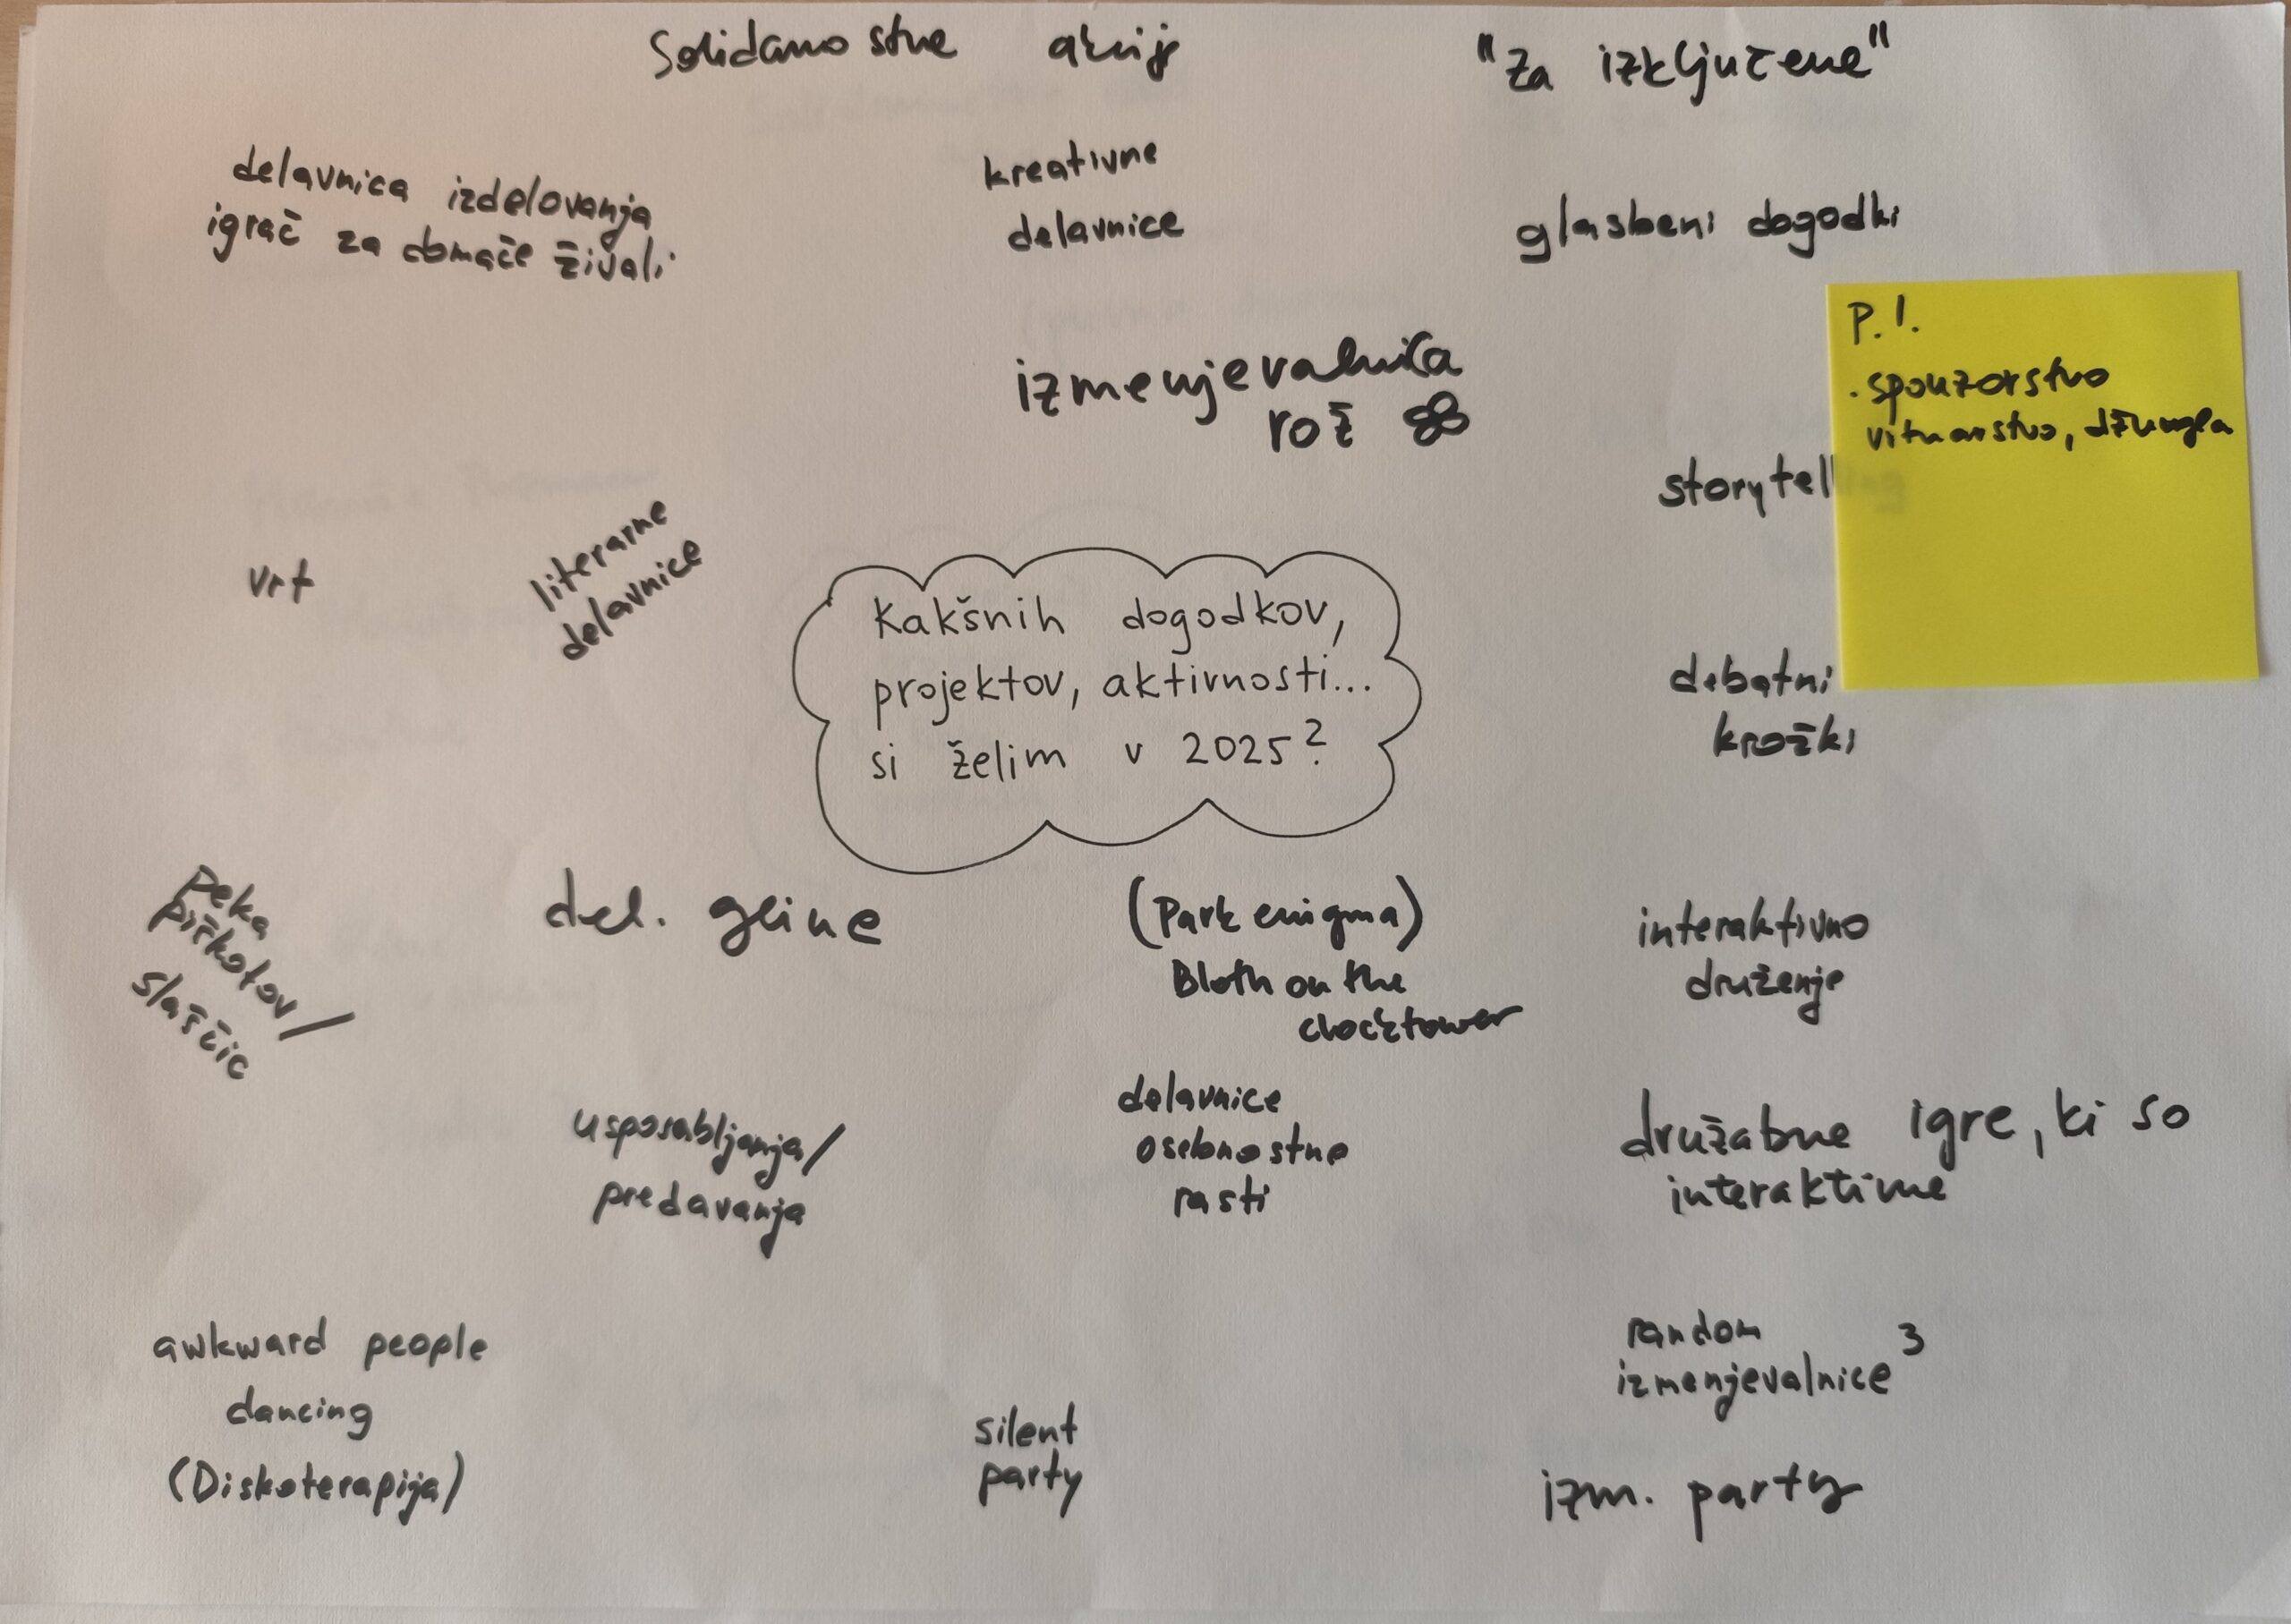 Solidarnostne akcije
"Za izključene"
delavnica izdelovanja
igrač za domače živali
kreativne
delavnice
glasbeni dogodki
P.!.
· sponzorstvo
vrtnarstvo, džungla
izmenjevalnica
rož
storytelling
vrt
literarne
delavnice
Kakšnih dogodkov,
projektov, aktivnosti...
si želim v 2025?
debatni
krožki
peka
piškotov/
slaščic
del. gline
(Park enigma)
Bloth on the
clocktower
interaktivno
druženje
usposabljanja/
predavanja
delavnice
osebnostne
rasti
družabne igre, ki so
interaktivne
awkward people
dancing
(Diskoterapija)
silent
party
random
izmenjevalnice³
izm. party